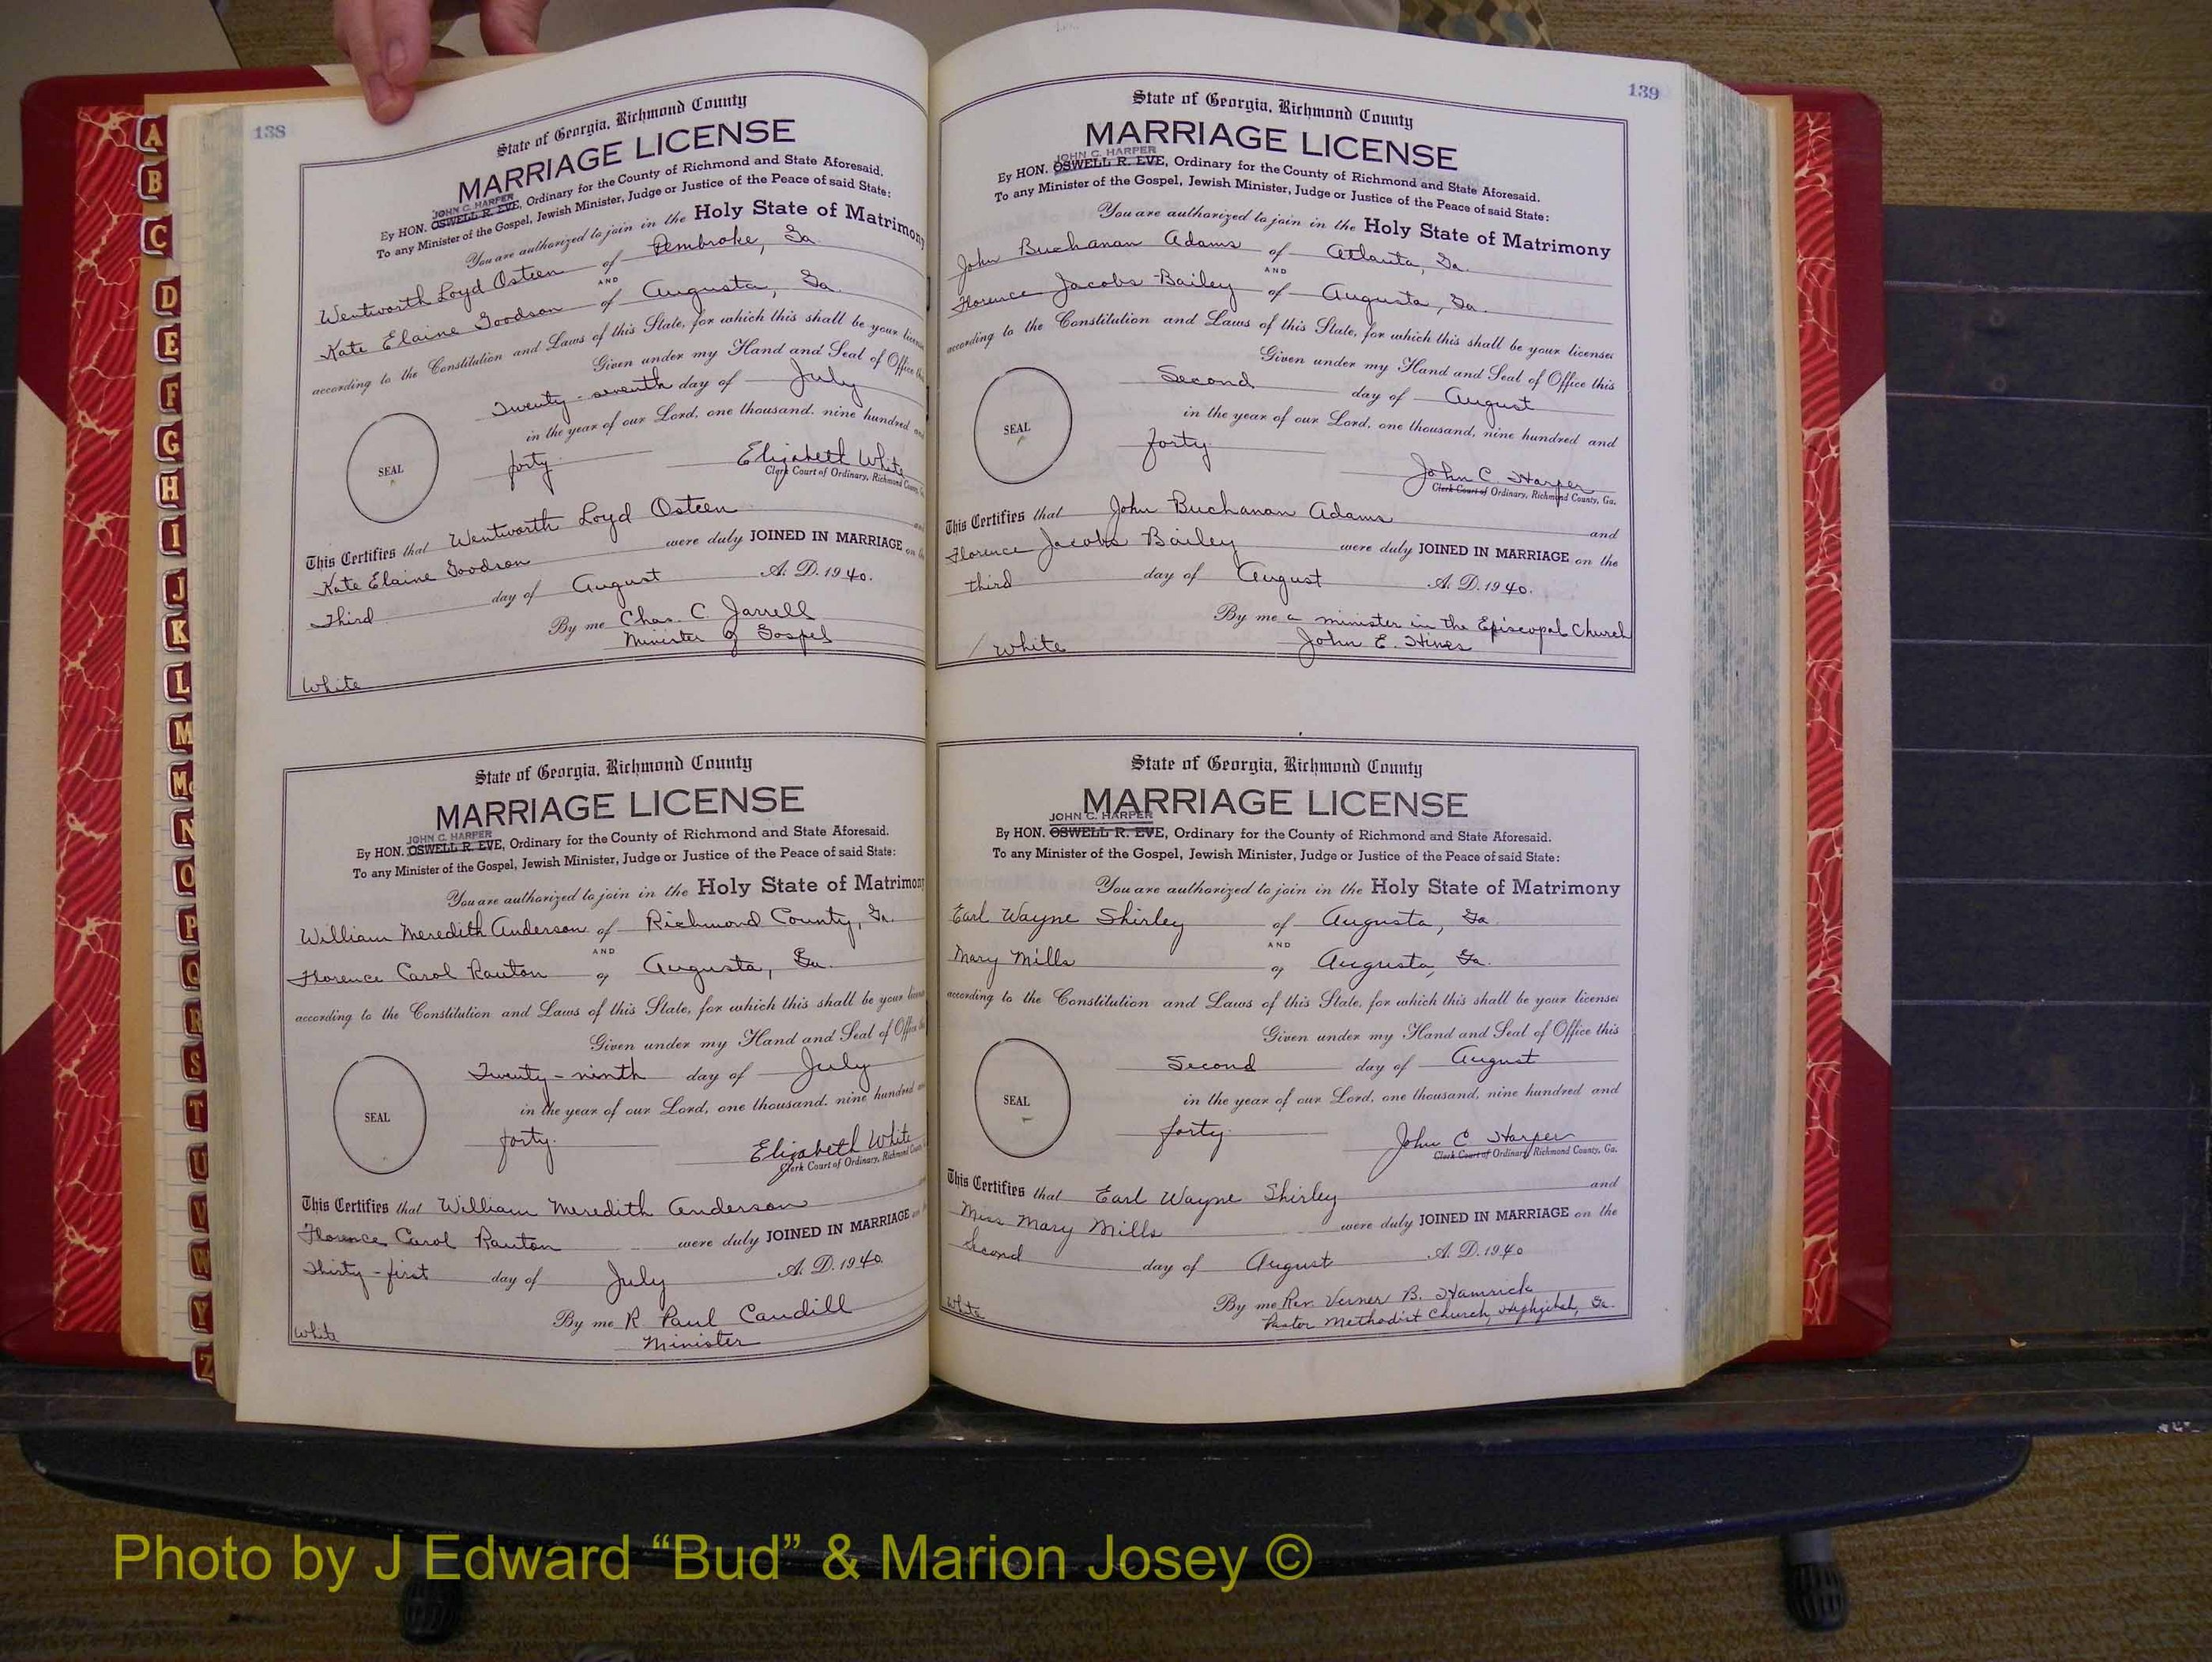 138
State of Georgia, Richmond County
MARRIAGE LICENSE
JOHN C. HARPER
By HON. OSWELL R. EVE, Ordinary for the County of Richmond and State Aforesaid.
To any Minister of the Gospel, Jewish Minister, Judge or Justice of the Peace of said State:
You are authorized to join in the Holy State of Matrimony
Wentworth Loyd Osteen of Pembroke, Ga.
AND
Kate Elaine Goodson of Augusta, Ga.
according to the Constitution and Laws of this State, for which this shall be your license
Given under my Hand and Seal of Office this
Twenty-seventh day of July
in the year of our Lord, one thousand, nine hundred and
SEAL
forty
Elizabeth White
Clerk Court of Ordinary, Richmond County,
This Certifies that Wentworth Loyd Osteen and
Kate Elaine Goodson were duly JOINED IN MARRIAGE on the
Third day of August A. D. 1940.
By me Chas. C. Jarrell
Minister of Gospel
White
State of Georgia, Richmond County
MARRIAGE LICENSE
JOHN C. HARPER
By HON. OSWELL R. EVE, Ordinary for the County of Richmond and State Aforesaid.
To any Minister of the Gospel, Jewish Minister, Judge or Justice of the Peace of said State:
You are authorized to join in the Holy State of Matrimony
William Meredith Anderson of Richmond County, Ga.
AND
Florence Carol Rauton of Augusta, Ga.
according to the Constitution and Laws of this State, for which this shall be your license
Given under my Hand and Seal of Office this
Twenty-ninth day of July
in the year of our Lord, one thousand, nine hundred and
SEAL
forty.
Elizabeth White
Clerk Court of Ordinary, Richmond County
This Certifies that William Meredith Anderson
Florence Carol Rauton were duly JOINED IN MARRIAGE on
Thirty-first day of July A. D. 1940.
By me R Paul Caudill
Minister
White
139
State of Georgia, Richmond County
MARRIAGE LICENSE
JOHN C. HARPER
By HON. OSWELL R. EVE, Ordinary for the County of Richmond and State Aforesaid.
To any Minister of the Gospel, Jewish Minister, Judge or Justice of the Peace of said State:
You are authorized to join in the Holy State of Matrimony
John Buchanan Adams of Atlanta, Ga.
AND
Florence Jacobs Bailey of Augusta, Ga.
according to the Constitution and Laws of this State, for which this shall be your license
Given under my Hand and Seal of Office this
Second day of August
in the year of our Lord, one thousand, nine hundred and
SEAL
forty
John C. Harper
Clerk Court of Ordinary, Richmond County, Ga.
This Certifies that John Buchanan Adams and
Florence Jacobs Bailey were duly JOINED IN MARRIAGE on the
third day of August A. D. 1940.
By me a minister in the Episcopal Church
John E. Hines
White
State of Georgia, Richmond County
MARRIAGE LICENSE
JOHN C. HARPER
By HON. OSWELL R. EVE, Ordinary for the County of Richmond and State Aforesaid.
To any Minister of the Gospel, Jewish Minister, Judge or Justice of the Peace of said State:
You are authorized to join in the Holy State of Matrimony
Earl Wayne Shirley of Augusta, Ga.
AND
Mary Mills of Augusta, Ga.
according to the Constitution and Laws of this State, for which this shall be your license
Given under my Hand and Seal of Office this
Second day of August
in the year of our Lord, one thousand, nine hundred and
SEAL
forty
John C. Harper
Clerk Court of Ordinary, Richmond County, Ga.
This Certifies that Earl Wayne Shirley and
Miss Mary Mills were duly JOINED IN MARRIAGE on the
Second day of August A. D. 1940
By me Rev. Verner B. Hamrick
Pastor Methodist Church, Hephzibah, Ga.
White
A
B
C
D
E
F
G
H
I
J
K
L
M
Mc
N
O
P
Q
R
S
T
U
V
W
Y
Z
Photo by J Edward “Bud” & Marion Josey ©